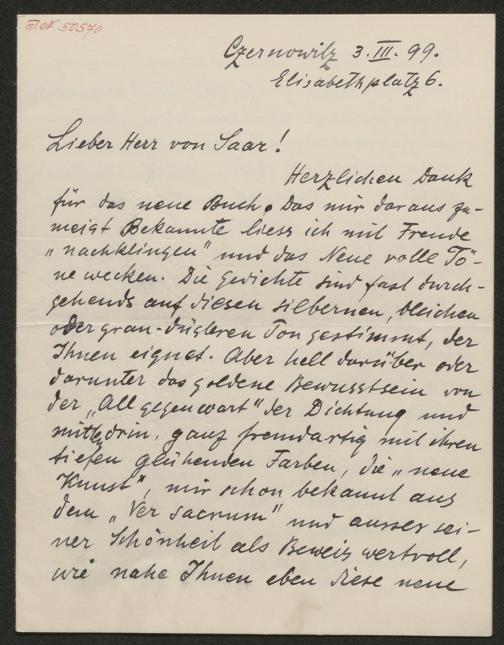 J.N. 50570
Czernowitz 3. III. 99.
Elisabethplatz 6.
Lieber Herr von Saar!
Herzlichen Dank
für das neue Buch. Das mir daraus zu-
meigt Bekannte liess ich mit Freude
„nachklingen" und das Neue volle Tö-
ne wecken. Die Gedichte sind fast durch-
gehends auf diesen silbernen, bleichen
oder grau-düsteren Ton gestimmt, der
Ihnen eignet. Aber hell darüber oder
darunter das goldene Bewusstsein von
der „Allgegenwart" der Dichtung und
mitten drin, ganz fremdartig mit ihren
tiefen glühenden Farben, die „neue
Kunst", mir schon bekannt aus
dem „Ver sacrum" und ausser sei-
ner Schönheit als Beweis wertvoll,
wie nahe Ihnen eben diese neue